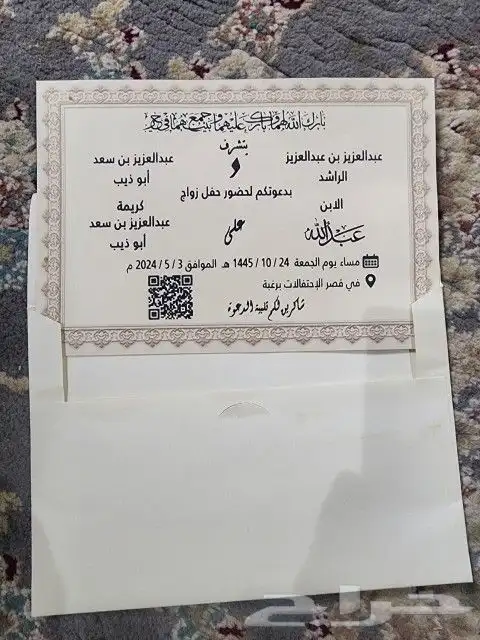 بارك الله لهما وبارك عليهما وجمع بينهما في خير
يتشرف
عبدالعزيز بن عبدالعزيز الراشد
و
عبدالعزيز بن سعد أبو ذيب
بدعوتكم لحضور حفل زواج
الابن
عبدالله
على
كريمة
عبدالعزيز بن سعد أبو ذيب
مساء يوم الجمعة 24 / 10 / 1445 هـ الموافق 3 / 5 / 2024 م
في قصر الإحتفالات برغبة
شاكرين لكم تلبية الدعوة
حراج